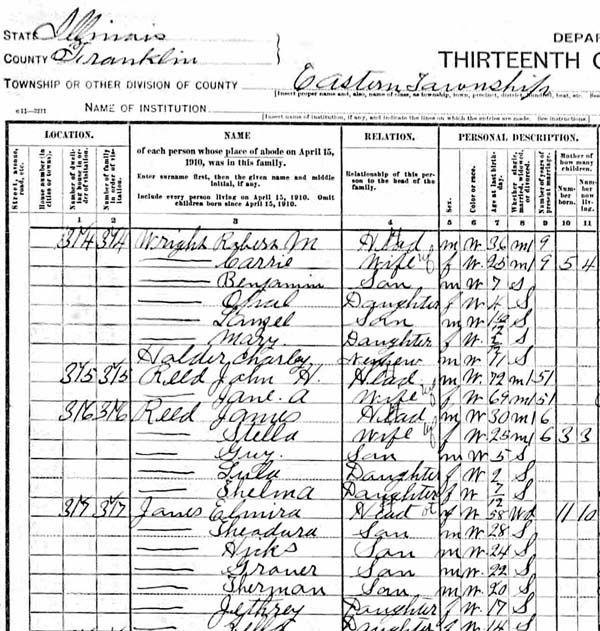 STATE Illinois
COUNTY Franklin
DEPAR
THIRTEENTH C
TOWNSHIP OR OTHER DIVISION OF COUNTY Eastern Township
[Insert proper name and, also, name of class, as township, town, precinct, district, hundred, beat, etc. See
NAME OF INSTITUTION
[Insert name of institution, if any, and indicate the lines on which the entries are made. See instructions.]
LOCATION. NAME RELATION. PERSONAL DESCRIPTION.
Street, avenue, road, etc.
House number (in cities or towns).
Number of dwelling house in order of visitation.
Number of family in order of visitation.
of each person whose place of abode on April 15, 1910, was in this family.
Enter surname first, then the given name and middle initial, if any.
Include every person living on April 15, 1910. Omit children born since April 15, 1910.
Relationship of this person to the head of the family.
Sex.
Color or race.
Age at last birthday.
Whether single, married, widowed, or divorced.
Number of years of present marriage.
Mother of how many children.
Number born.
Number now living.
1 2 3 4 5 6 7 8 9 10 11
374 374 Wright Robert M Head m W 36 m1 9
Carrie Wife f W 25 m1 9 5 4
Benjamin Son m W 7 S
Opal Daughter f W 4 S
Son m W S
Mary Daughter f W S
Holder Charley Nephew m W 7 S
375 375 Reed John H. Head m W 72 m1 51
Jane. A Wife f W 69 m1 51
376 376 Reed James Head m W 30 m1 6
Stella Wife f W 25 m1 6 3 3
Guy. Son m W 5 S
Lula Daughter f W 2 S
Thelma Daughter f W 7/12 S
377 377 Janes Elmira Head f W 58 Wd 11 10
Theadura Son m W 28 S
Hicks Son m W 24 S
Grover Son m W 22 S
Therman Son m W 20 S
Jethrey Daughter f W 17 S
Daughter f W 14 S